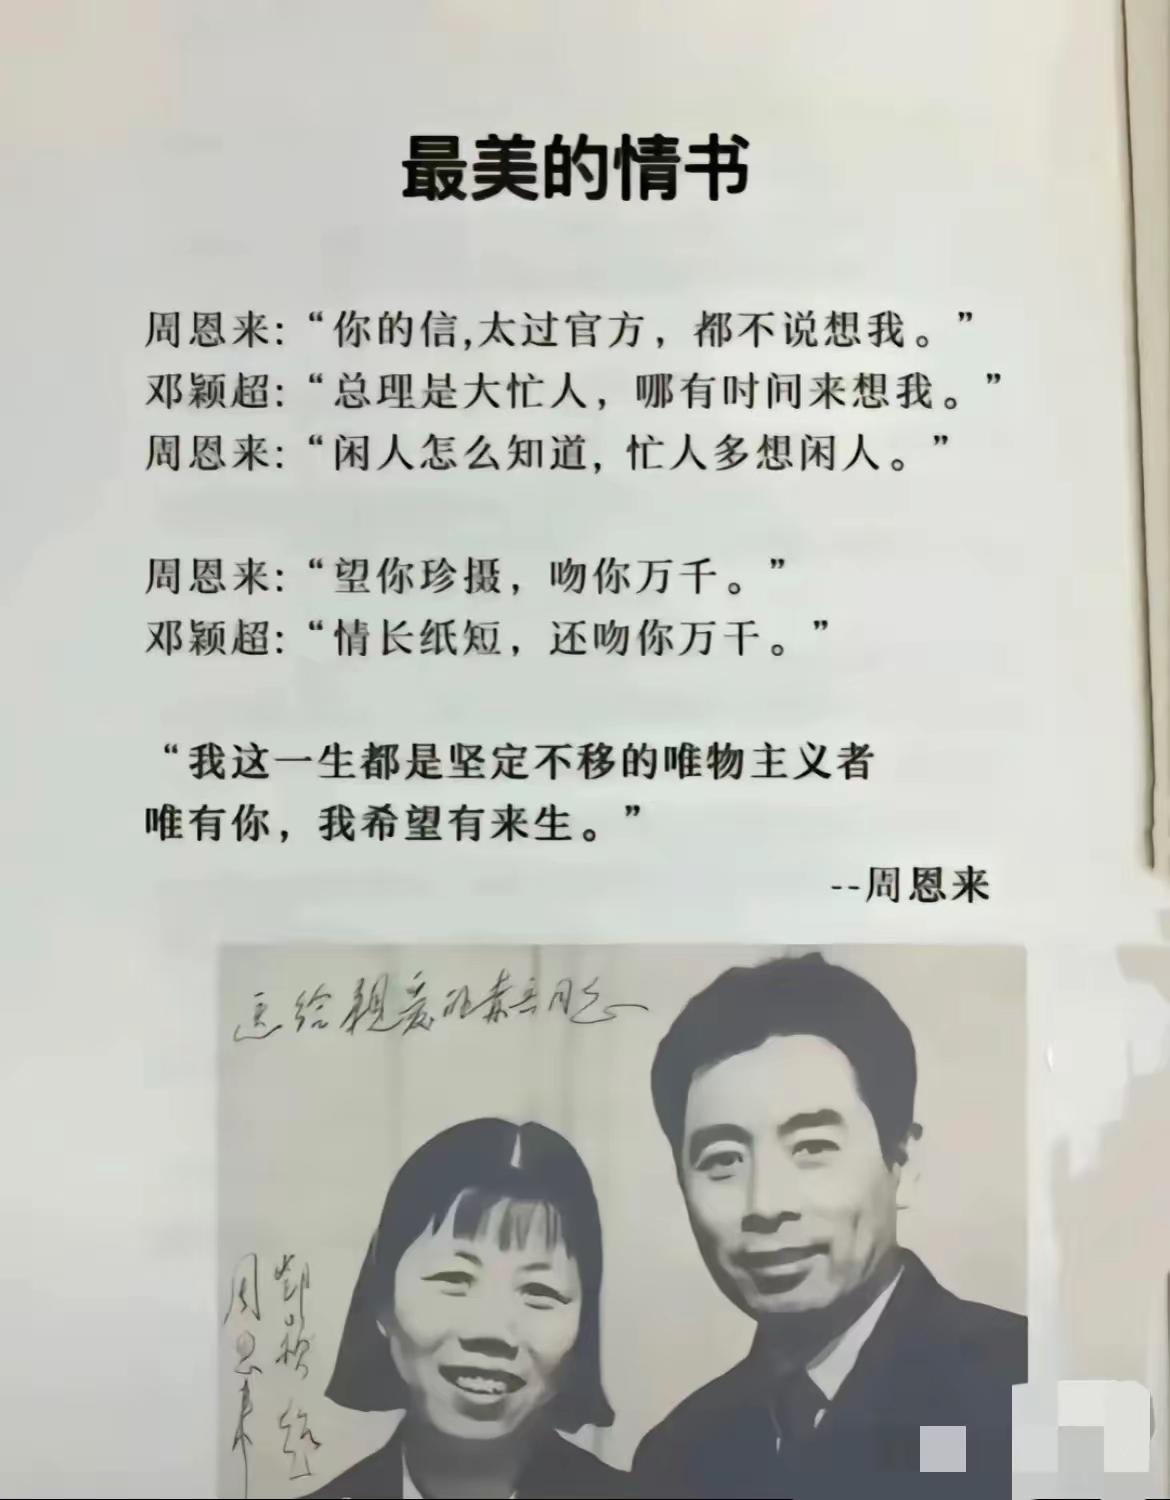 最美的情书
周恩来:“你的信,太过官方，都不说想我。”
邓颖超:“总理是大忙人，哪有时间来想我。”
周恩来:“闲人怎么知道, 忙人多想闲人。”
周恩来:“望你珍摄，吻你万千。”
邓颖超:“情长纸短，还吻你万千。”
“我这一生都是坚定不移的唯物主义者
唯有你，我希望有来生。”
--周恩来
送给亲爱的
同志
周恩来
邓颖超